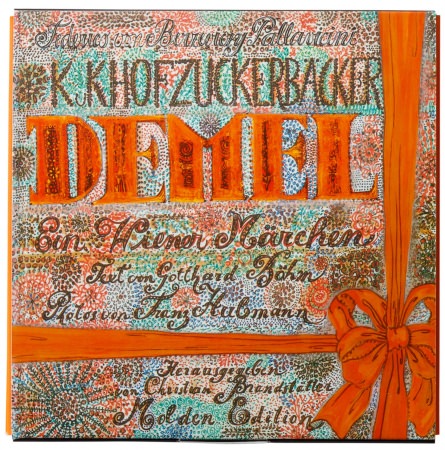 Federico von Berzeviczy Pallavicini
K.u.K HOFZUCKERBÄCKER
DEMEL
Ein Wiener Märchen
Text von Gotthard Böhm
Photos von Franz Hubmann
Herausgegeben
von Christian Brandstätter
Molden Edition